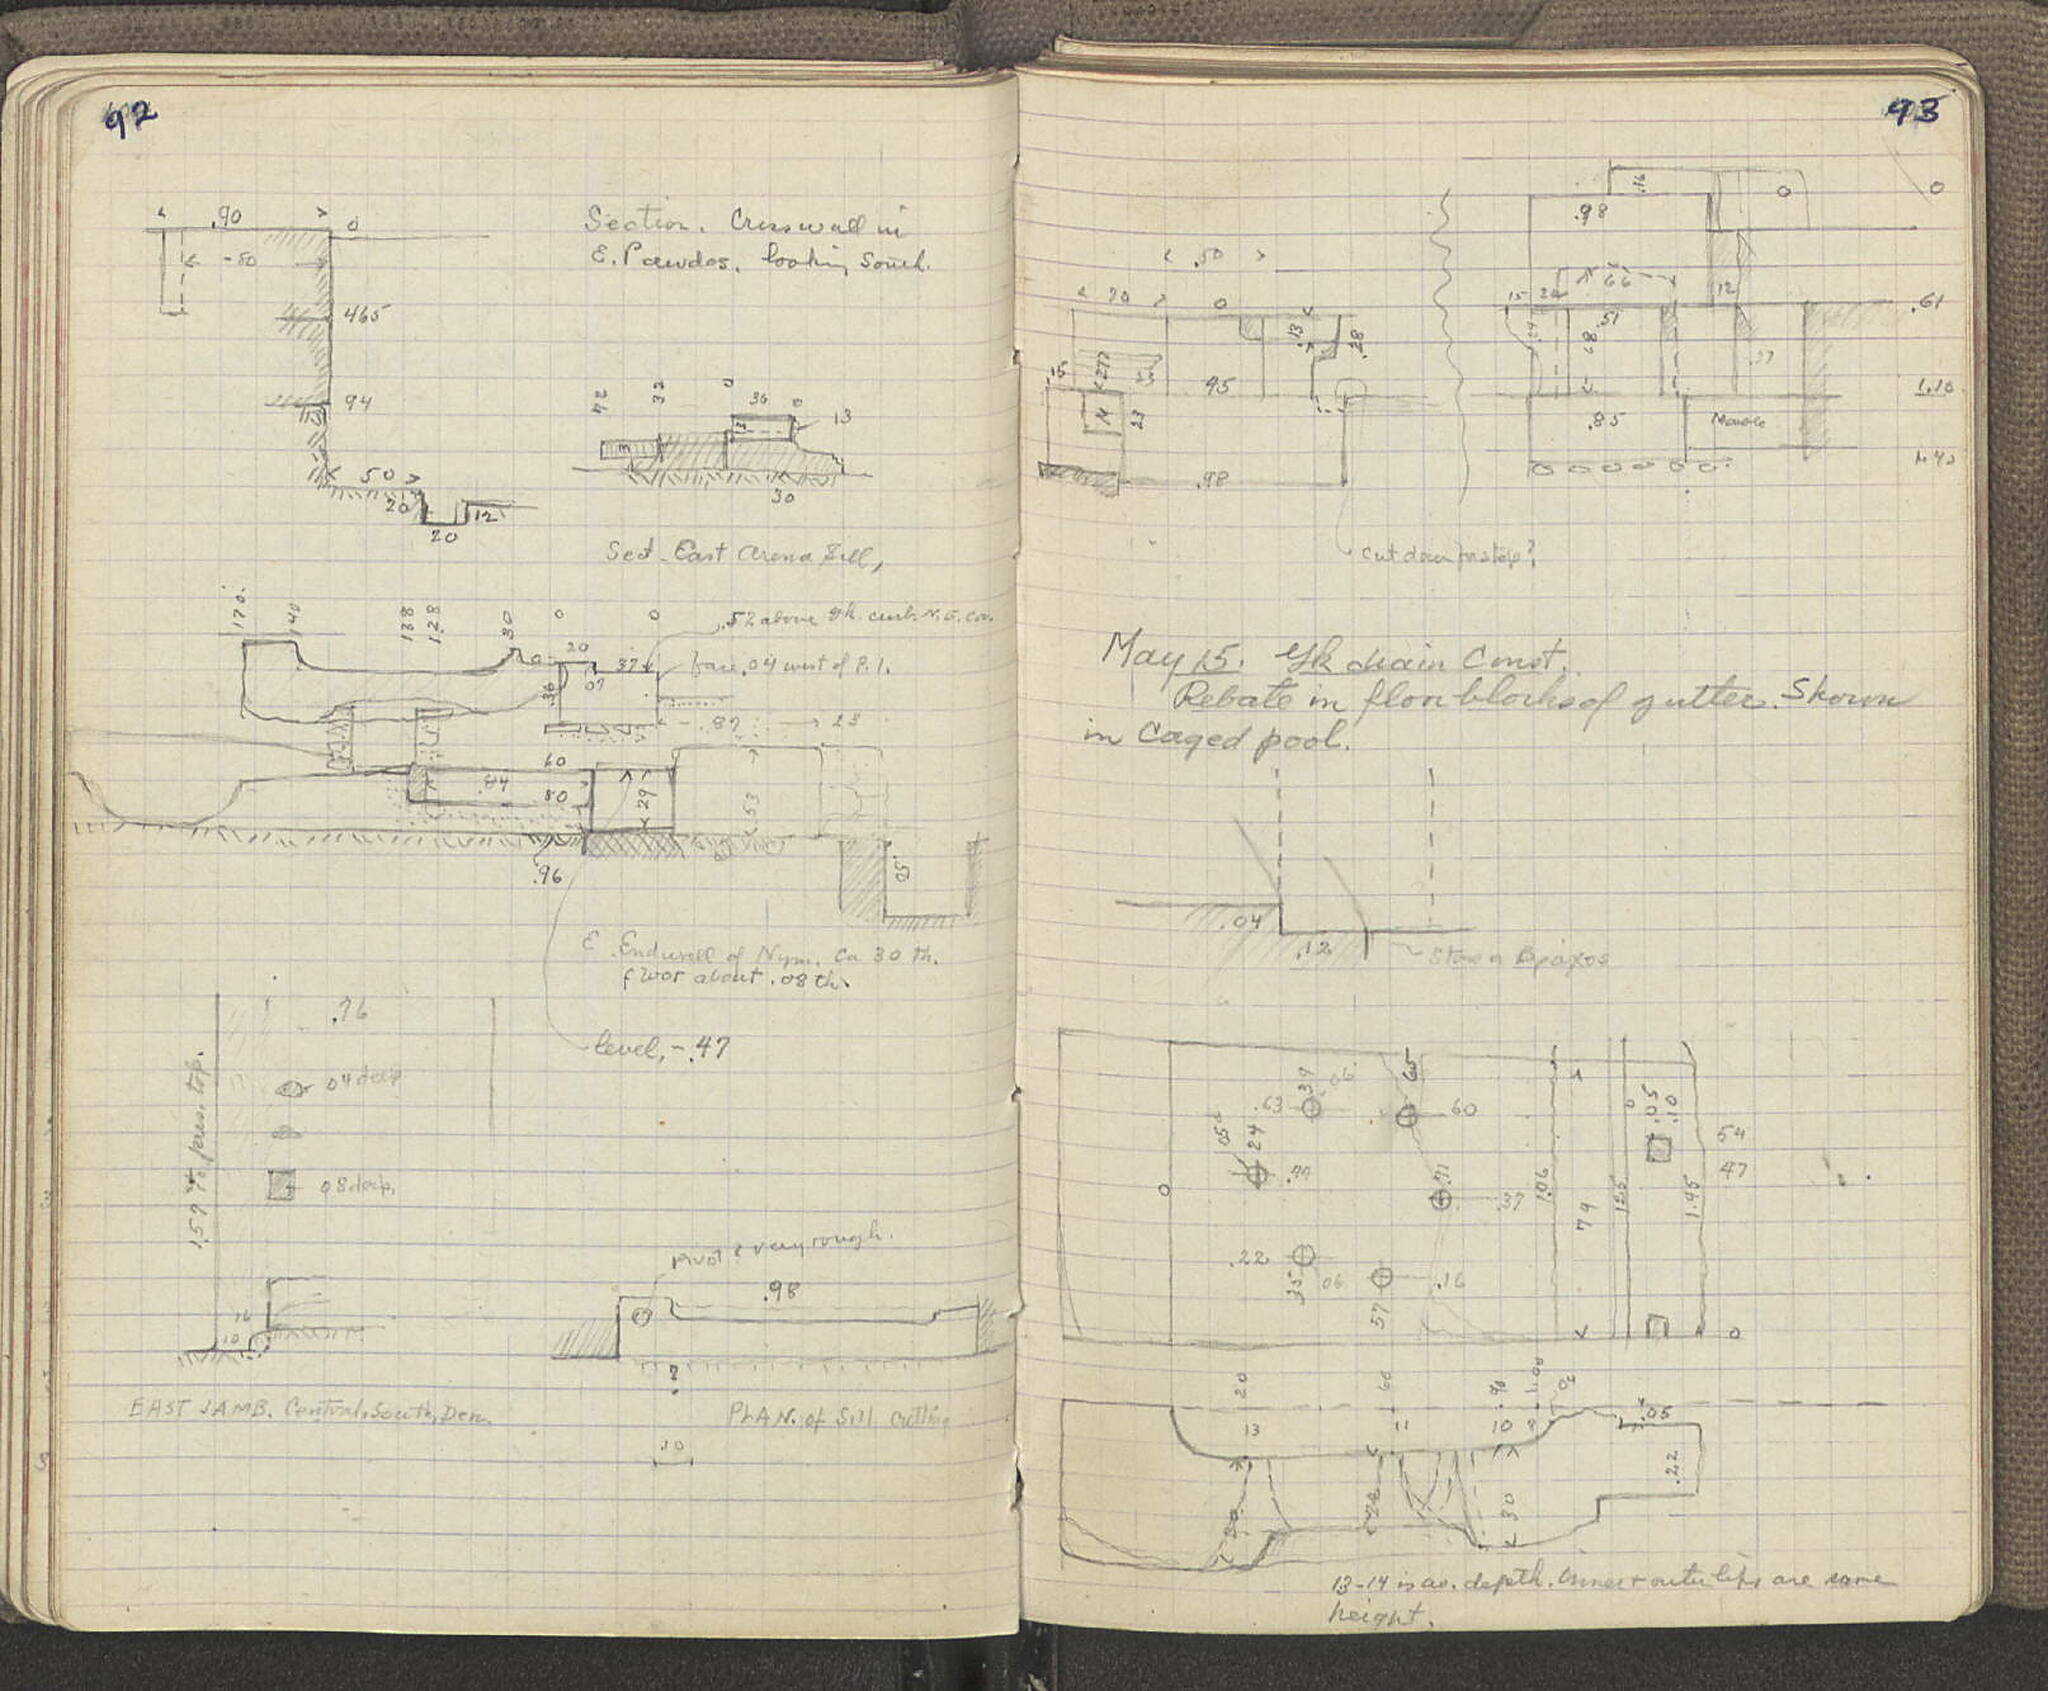 92
.90
0
-50
465
94
50
20
20
12
Section. Crosswall in
E. Parodos. looking South.
42
32
0
36
0
13
30
Sect. East Arena Sill,
170.
140
138
128
30
0
0
.52 above gk. curb. N. E. Cor.
20
0
37
face .04 west of P. 1.
36
07
.87
23
60
.84
80
29
.53
.96
05
E. Endwall of Nym. Ca 30 th.
floor about .08 th.
level, -.47
.76
04 deep
08 deep.
1.59 to pres. top.
16
10
pivot? very rough.
.98
?
EAST JAMB. Central, South, Den.
PLAN. of Sill cutting
.10
93
.16
0
0
.98
.50
70
0
66
15
12
.61
.13
.28
.51
.24
.68
.37
15
27
23
.45
1.10
14
23
.85
Marble
1.40
.98
Cut down for step?
May 15. Gk drain Const.
Rebate in floor blocks of gutter. Shown
in Caged pool.
.04
.12
Stone or Βράχος
.39
06
65
.63
60
0
.05
.10
.24
54
47
.71
.37
0
1.06
79
1.25
1.45
.22
35
06
.16
57
0
20
60
.90
1.00
13
11
10
8
.05
.22
30
13-14 is av. depth. Inner + outer lips are same
height.